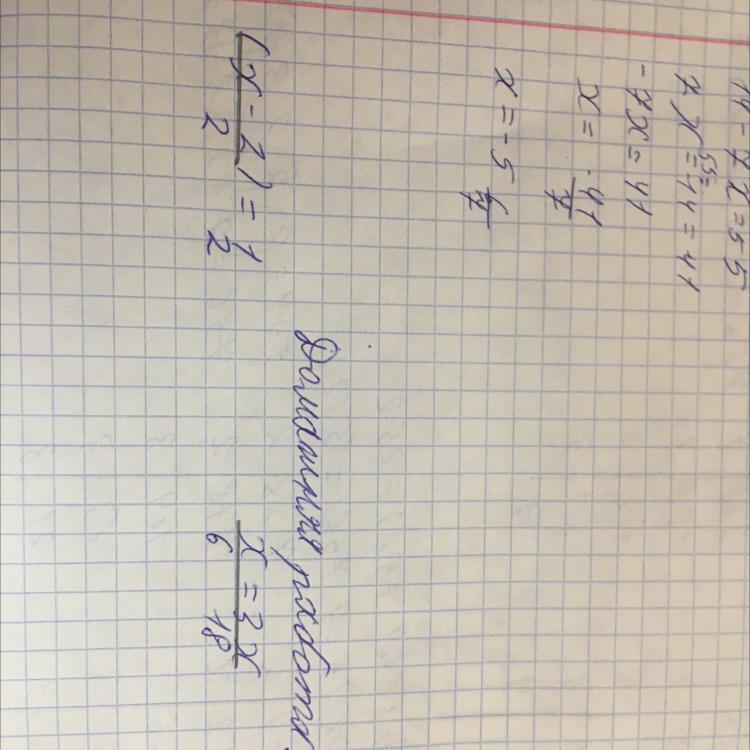 14 - 7x = 55
7x = 55 = 14 = 41
-7x = 41
x = - 41/7
x = -5 6/7
Домашняя работа.
(x - 2)/2 = 1/2
x/6 = 3x/18